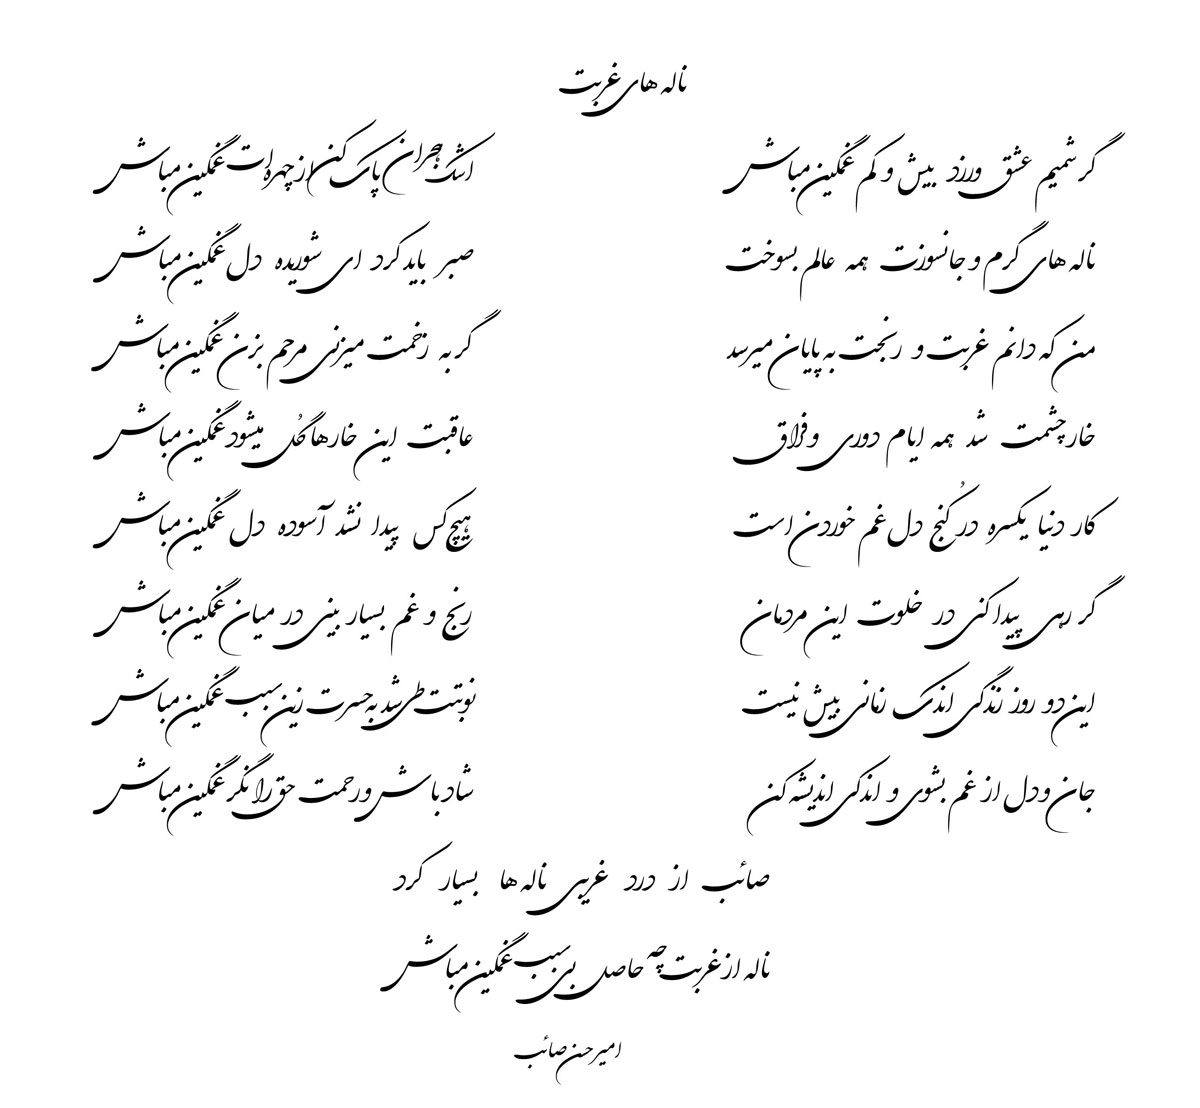 ناله های غربت
گر شمیم عشق ورزد بیش و کم غمگین مباش
اشک هجران پاک کن از چهره ات غمگین مباش
ناله های گرم و جانسوزت همه عالم بسوخت
صبر باید کرد ای شوریده دل غمگین مباش
من که دانم غربت و رنجت به پایان میرسد
گر به زخمت میزنی مرحم بزن غمگین مباش
خار چشمت شد همه ایام دوری و فراق
عاقبت این خارها گُل میشود غمگین مباش
کار دنیا یکسره در کُنج دل غم خوردن است
هیچ کس پیدا نشد آسوده دل غمگین مباش
گر رهی پیدا کنی در خلوت این مردمان
رنج و غم بسیار بینی در میان غمگین مباش
این دو روز زندگی اندک زمانی بیش نیست
نوبتت طی شد به حسرت زین سبب غمگین مباش
جان و دل از غم بشوی و اندکی اندیشه کن
شاد باش و رحمت حق را نگر غمگین مباش
صائب از درد غریبی ناله ها بسیار کرد
ناله از غربت چه حاصل بی سبب غمگین مباش
امیرحسن صائب